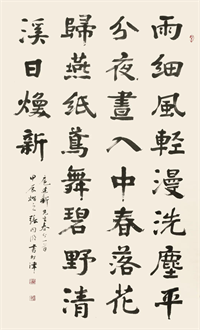 雨細風輕漫洗塵平
分夜晝入中春落花
歸燕紙鳶舞碧野清
溪日煥新